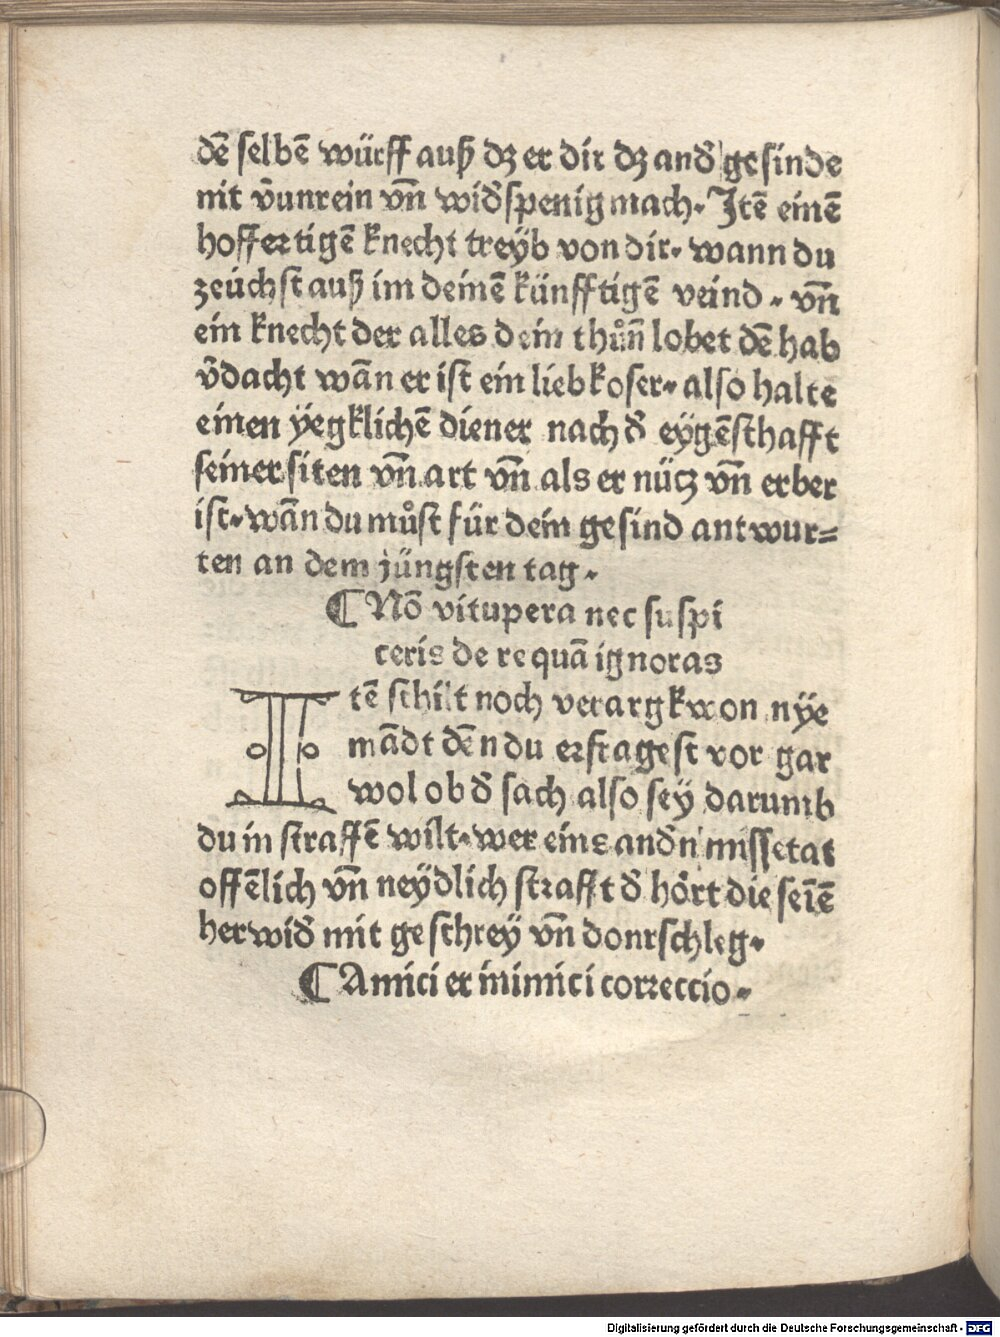 dē selbē würff auß dz er dir dz and̄ gesinde
nit v̄unrein vn̄ wid̄spenig mach. Jtē einē
hoffertigē knecht treÿb von dir. wann du
zeúchst auß im deinē künfftigē veind. vn̄
ein knecht der alles dein thůn̄ lobet dē hab
v̄dacht wān er ist ein liebkoser. also halte
einen ÿegklichē diener nach d̄ eÿgēschafft
seiner siten vn̄ art vn̄ als er nütz vn̄ erber
ist. wān du můst für dein gesind antwur=
ten an dem jüngsten tag.
⸿ Nō vitupera nec suspi
ceris de re quā ignoras
Itē schilt noch verargkwon nÿe
mādt dēn du erfragest vor gar
wol ob d̄ sach also seÿ darumb
du in straffē wilt. wer eins and̄n missetat
offēlich vn̄ neÿdlich strafft d̄ hoͤrt die seīē
herwid̄ mit geschreÿ vn̄ donrschleg.
⸿ Amici et inimici correccio.
Digitalisierung gefördert durch die Deutsche Forschungsgemeinschaft - DFG